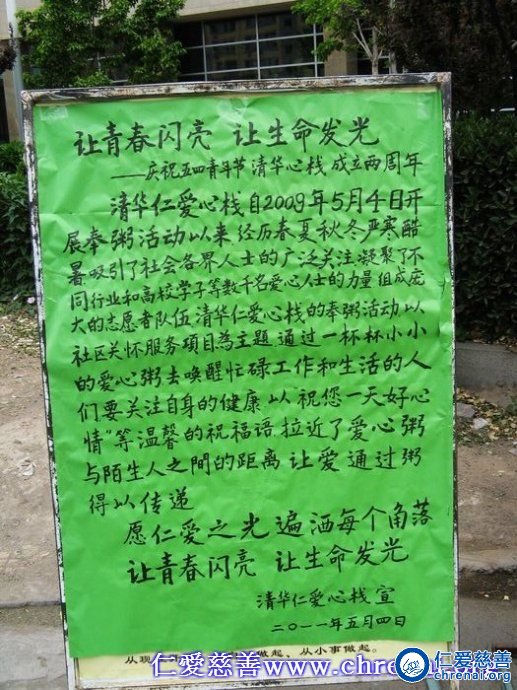 让青春闪亮 让生命发光
——庆祝五四青年节 清华心栈 成立两周年
清华仁爱心栈自2009年5月4日开
展奉粥活动以来 经历春夏秋冬严寒酷
暑吸引了社会各界人士的广泛关注凝聚了不
同行业和高校学子等数千名爱心人士的力量组成庞
大的志愿者队伍.清华仁爱心栈的奉粥活动以
社区关怀服务项目為主题 通过一杯杯小小
的爱心粥去唤醒忙碌工作和生活的人
们要关注自身的健康 以 祝您一天好心
情"等温馨的祝福语 拉近了爱心粥
与陌生人之間的距离 让爱通过粥
得以传递
愿仁爱之光遍洒每个角落
让青春闪亮 让生命发光
清华仁爱心栈宣
二〇一一年五月四日
做起、从小事做起。
仁爱慈善www.chrenai.org
仁爱慈善
chrenai.org